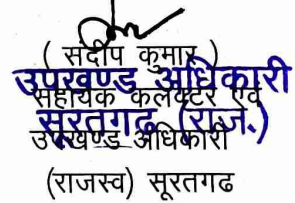 ( संदीप कुमार )
उपखण्ड अधिकारी
सहायक कलक्टर एवं
सूरतगढ़ (राज.)
उपखण्ड अधिकारी
(राजस्व) सूरतगढ